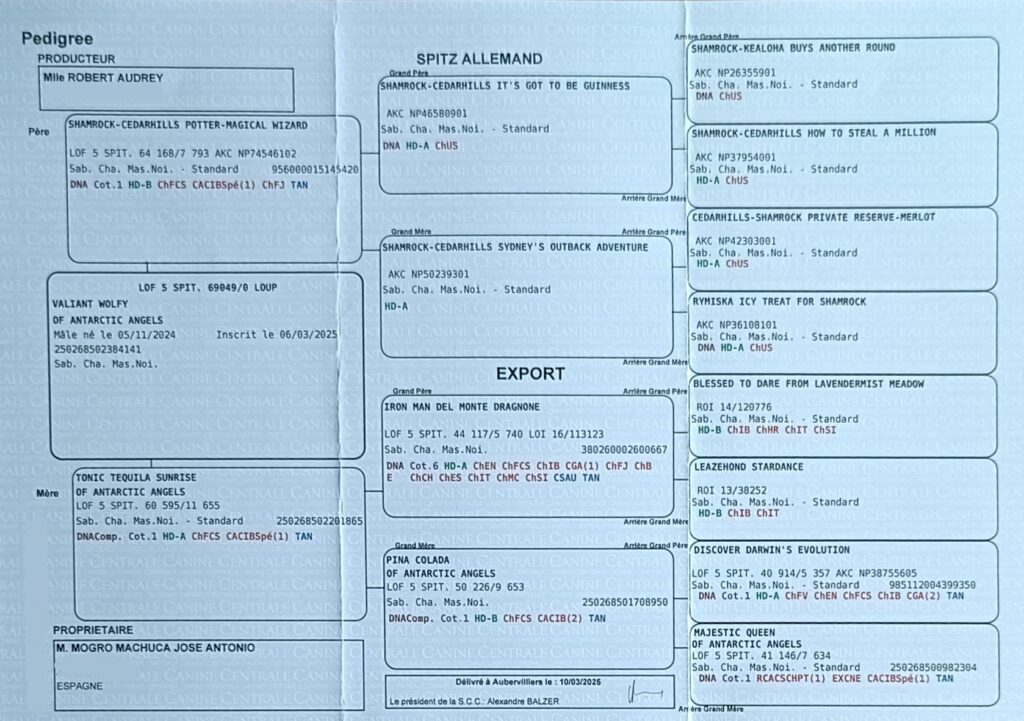 Pedigree
PRODUCTEUR
Mlle ROBERT AUDREY
Père
SHAMROCK-CEDARHILLS POTTER-MAGICAL WIZARD
LOF 5 SPIT. 64 168/7 793 AKC NP74546102
Sab. Cha. Mas.Noi. - Standard 956000015145420
DNA Cot.1 HD-B ChFCS CACIBSpé(1) ChFJ TAN
LOF 5 SPIT. 69049/0 LOUP
VALIANT WOLFY
OF ANTARCTIC ANGELS
Mâle né le 05/11/2024 Inscrit le 06/03/2025
250268502384141
Sab. Cha. Mas.Noi.
Mère
TONIC TEQUILA SUNRISE
OF ANTARCTIC ANGELS
LOF 5 SPIT. 60 595/11 655
Sab. Cha. Mas.Noi. - Standard 250268502201865
DNAComp. Cot.1 HD-A ChFCS CACIBSpé(1) TAN
PROPRIETAIRE
M. MOGRO MACHUCA JOSE ANTONIO
ESPAGNE
SPITZ ALLEMAND
Grand Père
SHAMROCK-CEDARHILLS IT'S GOT TO BE GUINNESS
AKC NP46580901
Sab. Cha. Mas.Noi. - Standard
DNA HD-A ChUS
Grand Mère
SHAMROCK-CEDARHILLS SYDNEY'S OUTBACK ADVENTURE
AKC NP50239301
Sab. Cha. Mas.Noi. - Standard
HD-A
EXPORT
Grand Père
IRON MAN DEL MONTE DRAGNONE
LOF 5 SPIT. 44 117/5 740 LOI 16/113123
Sab. Cha. Mas.Noi. 380260002600667
DNA Cot.6 HD-A ChEN ChFCS ChIB CGA(1) ChFJ ChB
E ChCH ChES ChIT ChMC ChSI CSAU TAN
Grand Mère
PINA COLADA
OF ANTARCTIC ANGELS
LOF 5 SPIT. 50 226/9 653
Sab. Cha. Mas.Noi. 250268501708950
DNAComp. Cot.1 HD-B ChFCS CACIB(2) TAN
Délivré à Aubervilliers le : 10/03/2025
Le président de la S.C.C.: Alexandre BALZER
Arrière Grand Père
SHAMROCK-KEALOHA BUYS ANOTHER ROUND
AKC NP26355901
Sab. Cha. Mas.Noi. - Standard
DNA ChUS
SHAMROCK-CEDARHILLS HOW TO STEAL A MILLION
AKC NP37954001
Sab. Cha. Mas.Noi. - Standard
HD-A ChUS
Arrière Grand Mère
CEDARHILLS-SHAMROCK PRIVATE RESERVE-MERLOT
Arrière Grand Père
AKC NP42303001
Sab. Cha. Mas.Noi. - Standard
HD-A ChUS
RYMISKA ICY TREAT FOR SHAMROCK
AKC NP36108101
Sab. Cha. Mas.Noi. - Standard
DNA HD-A ChUS
Arrière Grand Mère
BLESSED TO DARE FROM LAVENDERMIST MEADOW
Arrière Grand Père
ROI 14/120776
Sab. Cha. Mas.Noi. - Standard
HD-B ChIB ChHR ChIT ChSI
LEAZEHOND STARDANCE
ROI 13/38252
Sab. Cha. Mas.Noi. - Standard
HD-B ChIB ChIT
Arrière Grand Mère
Arrière Grand Père
DISCOVER DARWIN'S EVOLUTION
LOF 5 SPIT. 40 914/5 357 AKC NP38755605
Sab. Cha. Mas.Noi. - Standard 985112004399350
DNA Cot.1 HD-A ChFV ChEN ChFCS ChIB CGA(2) TAN
MAJESTIC QUEEN
OF ANTARCTIC ANGELS
LOF 5 SPIT. 41 146/7 634
Sab. Cha. Mas.Noi. - Standard 250268500982304
DNA Cot.1 RCACSCHPT(1) EXCNE CACIBSpé(1) TAN
Arrière Grand Mère